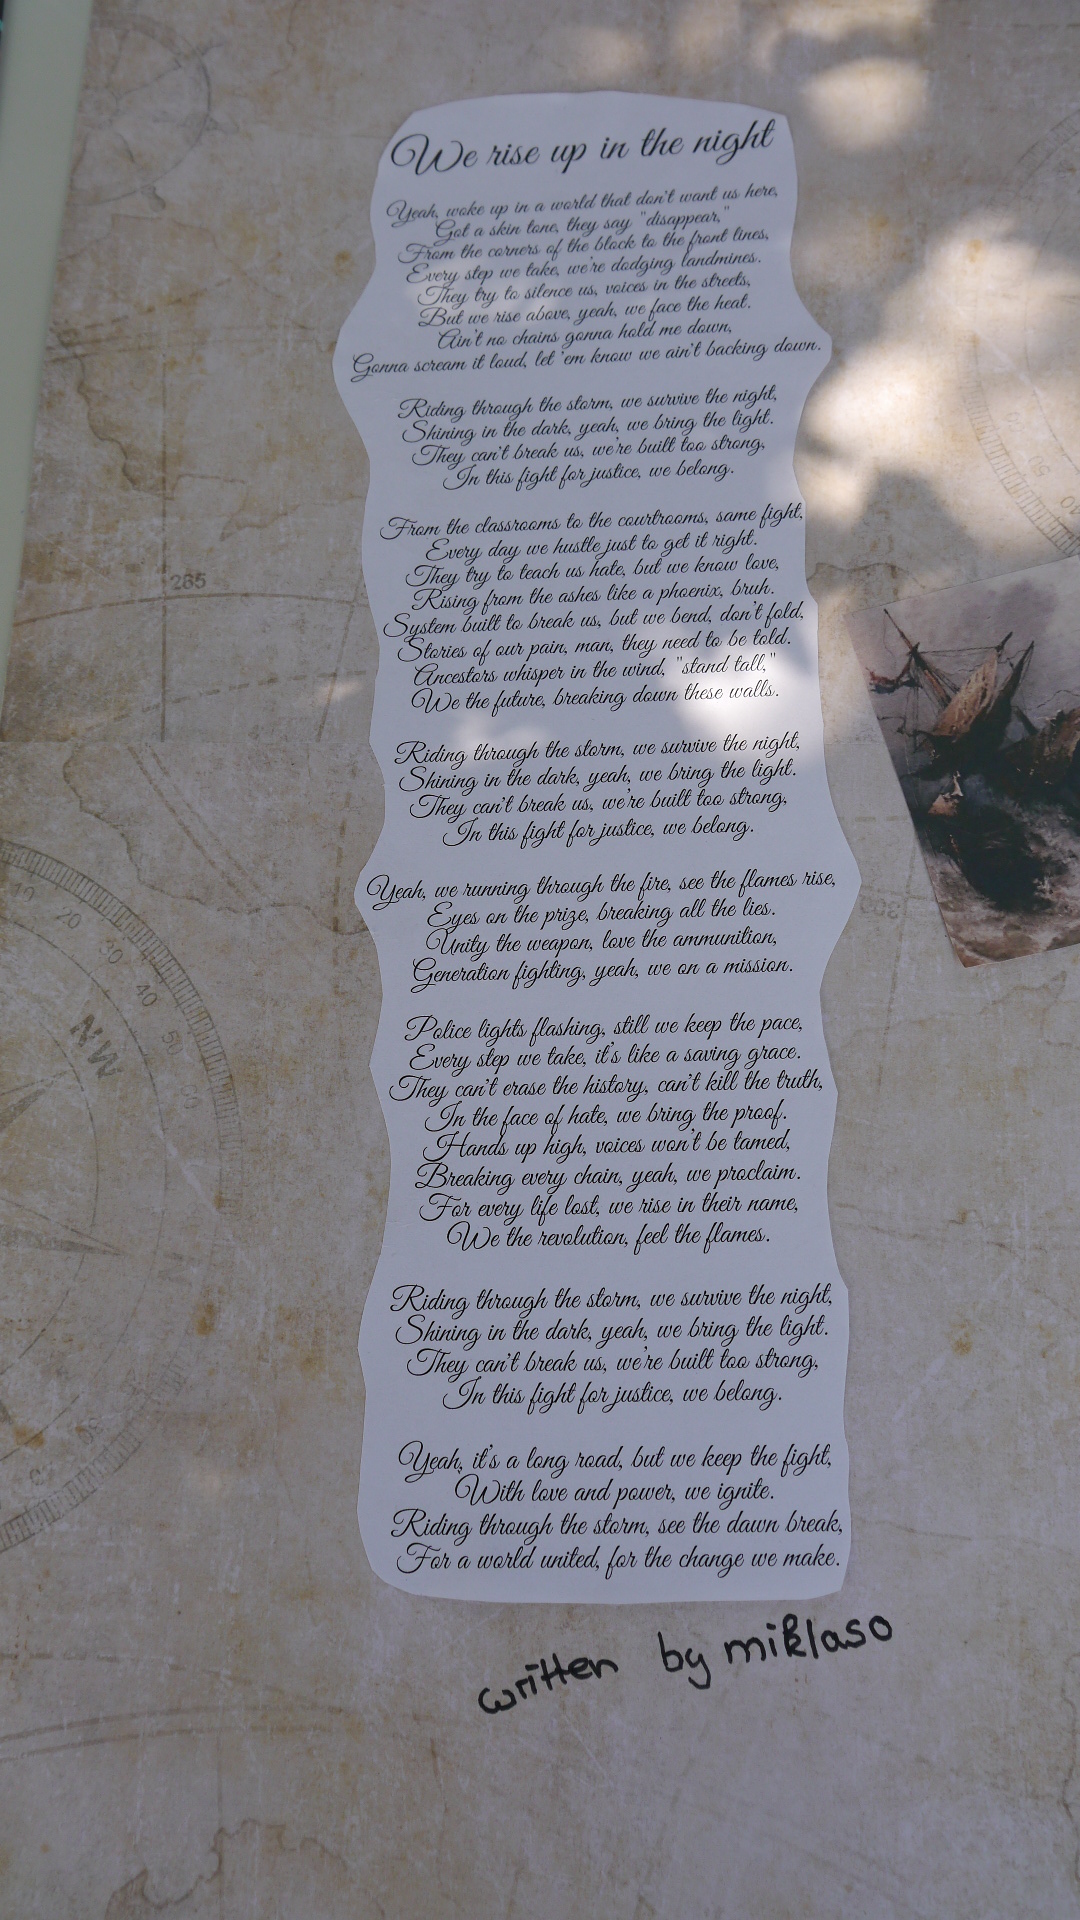 We rise up in the night
Yeah, woke up in a world that don't want us here,
Got a skin tone, they say "disappear,"
From the corners of the block to the front lines,
Every step we take, we're dodging landmines.
They try to silence us, voices in the streets,
But we rise above, yeah, we face the heat.
Ain't no chains gonna hold me down,
Gonna scream it loud, let 'em know we ain't backing down.
Riding through the storm, we survive the night,
Shining in the dark, yeah, we bring the light.
They can't break us, we're built too strong,
In this fight for justice, we belong.
From the classrooms to the courtrooms, same fight,
Every day we hustle just to get it right.
They try to teach us hate, but we know love,
Rising from the ashes like a phoenix, bruh.
System built to break us, but we bend, don't fold,
Stories of our pain, man, they need to be told.
Ancestors whisper in the wind, "stand tall,"
We the future, breaking down these walls.
Riding through the storm, we survive the night,
Shining in the dark, yeah, we bring the light.
They can't break us, we're built too strong,
In this fight for justice, we belong.
Yeah, we running through the fire, see the flames rise,
Eyes on the prize, breaking all the lies.
Unity the weapon, love the ammunition,
Generation fighting, yeah, we on a mission.
Police lights flashing, still we keep the pace,
Every step we take, it's like a saving grace.
They can't erase the history, can't kill the truth,
In the face of hate, we bring the proof.
Hands up high, voices won't be tamed,
Breaking every chain, yeah, we proclaim.
For every life lost, we rise in their name,
We the revolution, feel the flames.
Riding through the storm, we survive the night,
Shining in the dark, yeah, we bring the light.
They can't break us, we're built too strong,
In this fight for justice, we belong.
Yeah, it's a long road, but we keep the fight,
With love and power, we ignite.
Riding through the storm, see the dawn break,
For a world united, for the change we make.
written by miklaso
285
10
20
30
40
50
NW